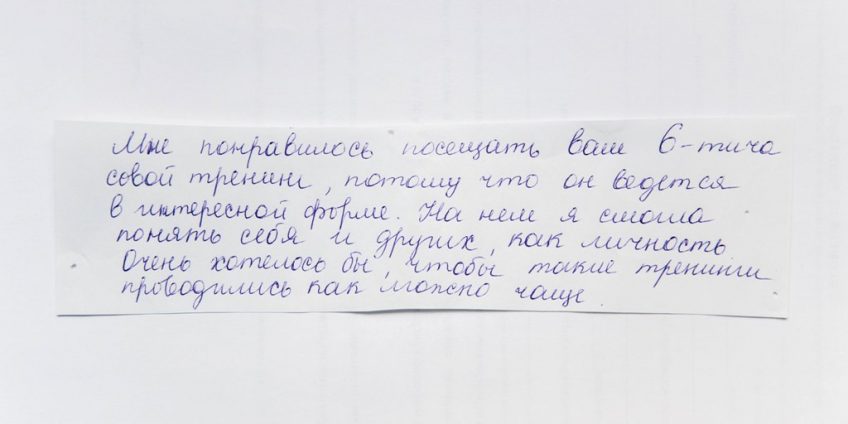 Мне понравилось посещать ваш 6-тича
совой тренинг, потому что он ведется
в интересной форме. На нем я смогла
понять себя и других, как личность
Очень хотелось бы, чтобы такие тренинги
проводились как можно чаще.